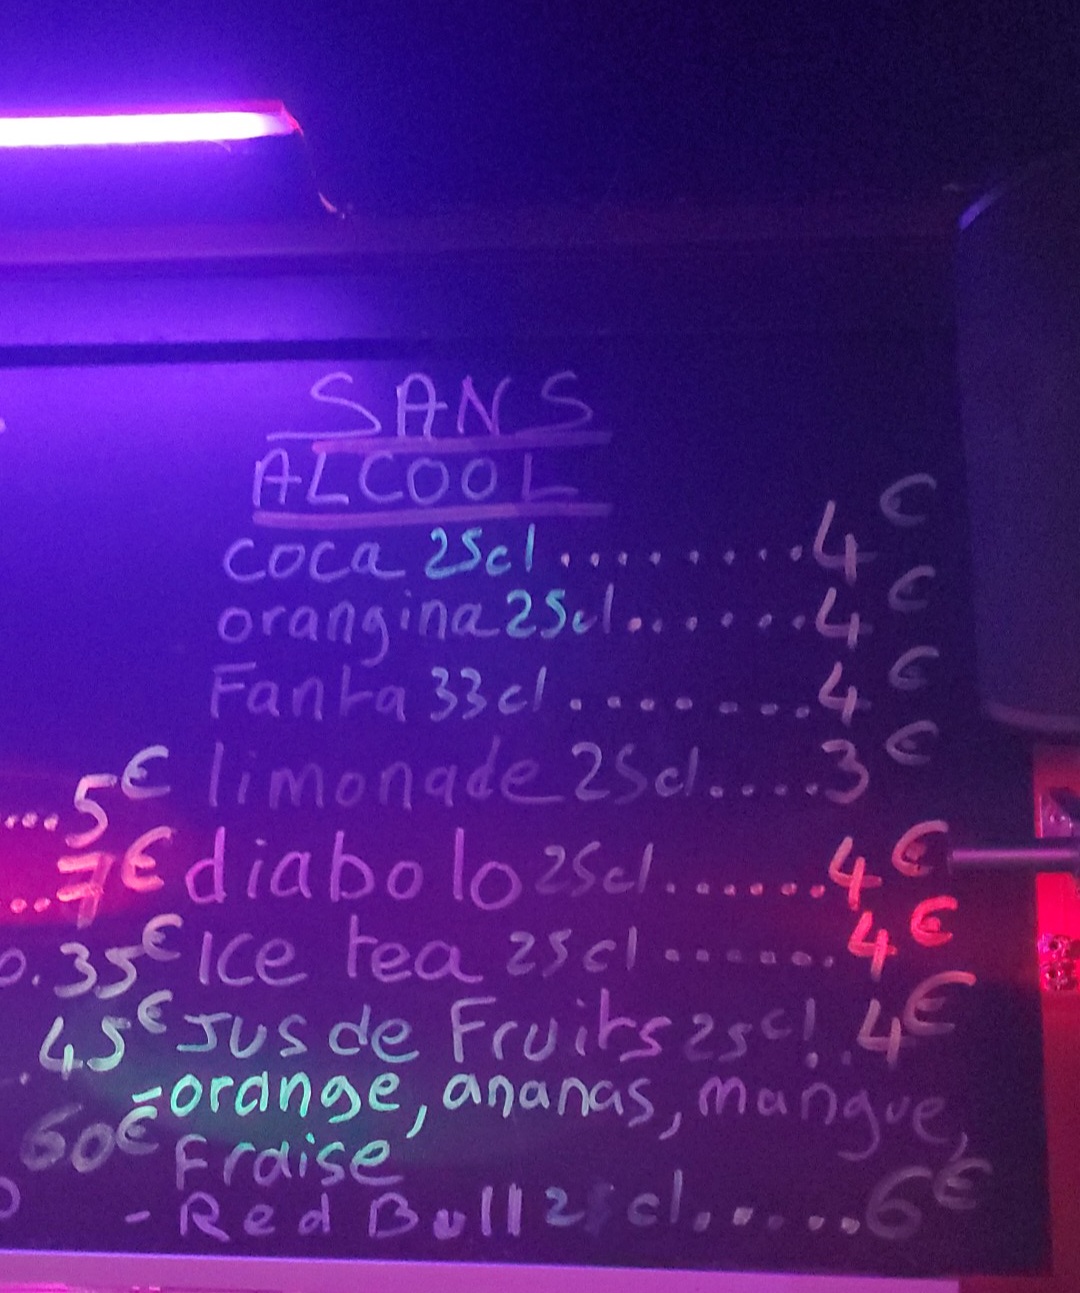 SANS
ALCOOL
coca 25cl.........4€
orangina 25cl.......4€
Fanta 33cl........4€
...5€ limonade 25cl....3€
...7€ diabolo 25cl.......4€
.35€ Ice tea 25cl.......4€
.45€ Jus de Fruits 25cl..4€
-orange, ananas, mangue,
60€ Fraise
- Red Bull 25cl......6€